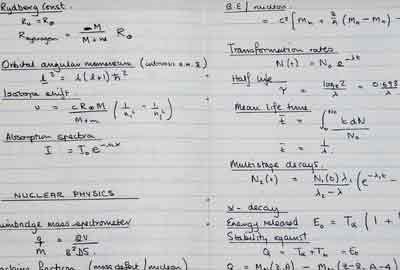 Rydberg Const.
R₀ = R∞
R hydrogen = M / M+m R∞
Orbital angular momentum (intrinsic s.m. s)
l² = l(l+1) ħ²
Isotope shift.
υ = c R∞ M / M+m (1/n₁² - 1/n₂²)
Absorption spectra
I = I₀ e
NUCLEAR PHYSICS
mass spectrometer
q/M = 2V / B²DS
fraction (mass defect / nucleon)
B.E / nucleon
= c² [Mn + Z/A (MH - Mn) -
Transformation rates
N(t) = N₀ e^-λt
Half life
τ = loge 2 / λ = 0.693 / λ
Mean life time
t̄ = ∫ t dN / N₀
t̄ = 1/λ
Multistage decays.
N₂(t) = N₁(0) λ₁ / λ₂ - λ (e^-λ₁t -
α - decay
Energy released E₀ = Tα (1 +
Stability against
Q = Tα + Tb = E₀
Q = M (Z, A) - M (Z-2, A-4)